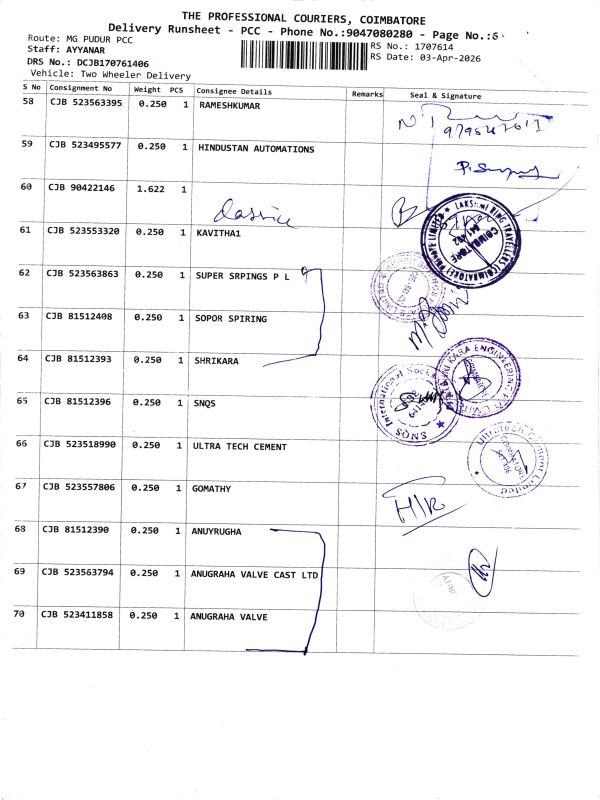 THE PROFESSIONAL COURIERS, COIMBATORE
Delivery Runsheet - PCC - Phone No.:9047080280 - Page No.:6
Route: MG PUDUR PCC
RS No.: 1707614
Staff: AYYANAR
RS Date: 03-Apr-2026
DRS No.: DCJB170761406
Vehicle: Two Wheeler Delivery
S No Consignment No Weight PCS Consignee Details Remarks Seal & Signature
58 CJB 523563395 0.250 1 RAMESHKUMAR
59 CJB 523495577 0.250 1 HINDUSTAN AUTOMATIONS
60 CJB 90422146 1.622 1
61 CJB 523553320 0.250 1 KAVITHA1
LAKSHMI RING TRAVELLERS (COIMBATORE) PRIVATE LIMITED
COIMBATORE
62 CJB 523563863 0.250 1 SUPER SRPINGS P L
63 CJB 81512408 0.250 1 SOPOR SPIRING
64 CJB 81512393 0.250 1 SHRIKARA
65 CJB 81512396 0.250 1 SNQS
SNQS International Socks
66 CJB 523518990 0.250 1 ULTRA TECH CEMENT
Ultratech Cement Limited
67 CJB 523557806 0.250 1 GOMATHY
68 CJB 81512390 0.250 1 ANUYRUGHA
69 CJB 523563794 0.250 1 ANUGRAHA VALVE CAST LTD
70 CJB 523411858 0.250 1 ANUGRAHA VALVE